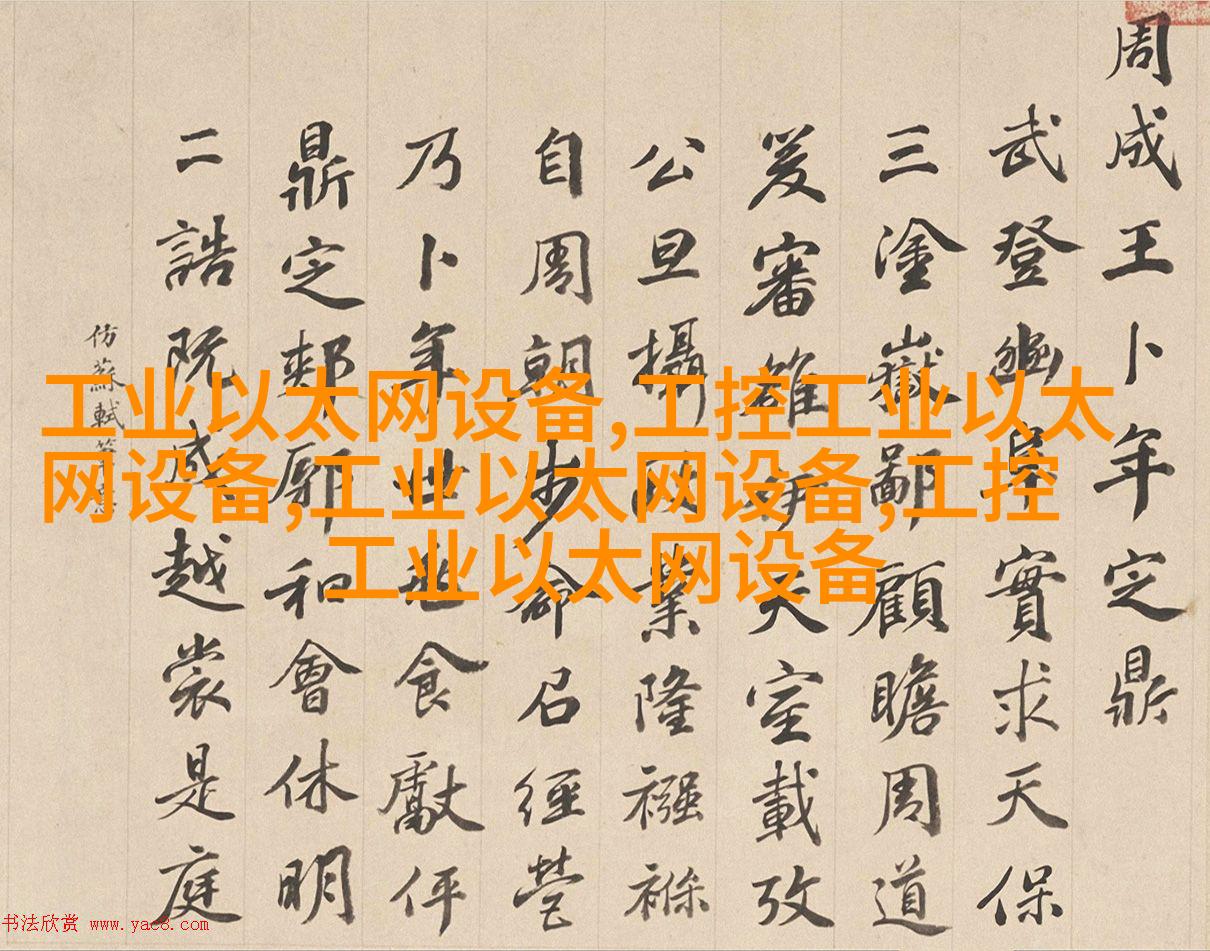 周成王卜年定鼎
武登豳阜實求天保
三塗嶽鄙顧瞻周道
爰審雒伊天室載攷
公旦攝政業隆襁褓
自周朝步命召經營
乃卜年世食獻伻
鼎定郟鄏和會休明
二誥既成越裳是庭
仿蘇軾筆
工业以太网设备,工控工业以太
网设备,工业以太网设备,工控
工业以太网设备
书法欣赏 www.yac8.com